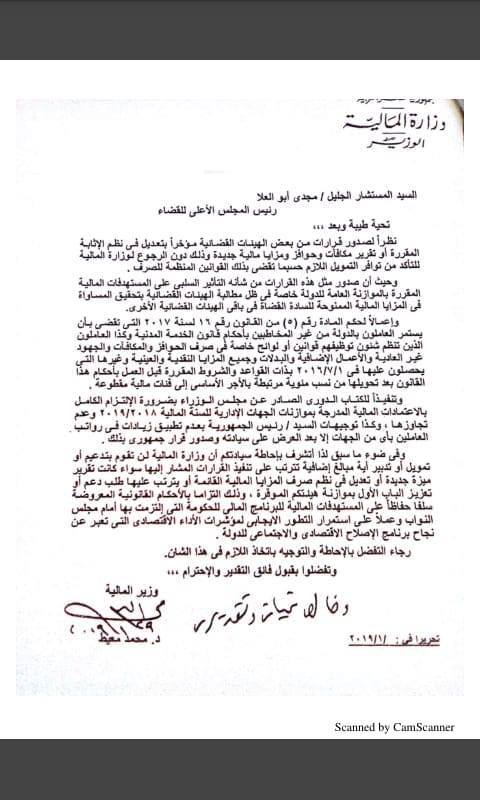 وزارة المالية
الوزير
السيد المستشار الجليل / مجدى أبو العلا
رئيس المجلس الأعلى للقضاء
تحية طيبة وبعد ،،،
نظراً لصدور قرارات من بعض الهيئات القضائية مؤخراً بتعديل فى نظم الإثابة
المقررة أو تقرير مكافآت وحوافز ومزايا مالية جديدة وذلك دون الرجوع لوزارة المالية
للتأكد من توافر التمويل اللازم حسبما تقضى بذلك القوانين المنظمة للصرف .
وحيث أن صدور مثل هذه القرارات من شأنه التأثير السلبى على المستهدفات المالية
المقررة بالموازنة العامة للدولة خاصة فى ظل مطالبة الهيئات القضائية بتحقيق المساواة
فى المزايا المالية الممنوحة للسادة القضاة فى باقى الهيئات القضائية الأخرى.
وإعمالاً لحكم المادة رقم (٥) من القانون رقم ١٦ لسنة ٢٠١٧ التى تقضى بأن
يستمر العاملون بالدولة من غير المخاطبين بأحكام قانون الخدمة المدنية وكذا العاملون
الذين تنظم شئون توظيفهم قوانين أو لوائح خاصة فى صرف الحوافز والمكافآت والجهود
غير العادية والأعمال الإضافية والبدلات وجميع المزايا النقدية والعينية وغيرها التى
يحصلون عليها فى ٢٠١٦/٧/١ بذات القواعد والشروط المقررة قبل العمل بأحكام هذا
القانون بعد تحويلها من نسب مئوية مرتبطة بالأجر الأساسى إلى فئات مالية مقطوعة .
وتنفيذاً للكتاب الدورى الصادر عن مجلس الوزراء بضرورة الإلتزام الكامل
بالاعتمادات المالية المدرجة بموازنات الجهات الإدارية للسنة المالية ٢٠١٩/٢٠١٨ وعدم
تجاوزها ، وكذا توجيهات السيد / رئيس الجمهورية بعدم تطبيق زيادات فى رواتب
العاملين بأى من الجهات إلا بعد العرض على سيادته وصدور قرار جمهورى بذلك .
وفى ضوء ما سبق لذا أتشرف بإحاطة سيادتكم أن وزارة المالية لن تقوم بتدعيم أو
تمويل أو تدبير أية مبالغ إضافية تترتب على تنفيذ القرارات المشار إليها سواء كانت تقرير
ميزة جديدة أو تعديل فى نظم صرف المزايا المالية القائمة أو يترتب عليها طلب دعم أو
تعزيز الباب الأول بموازنة هيئتكم الموقرة ، وذلك التزاما بالأحكام القانونية المعروضة
سلفا حفاظاً على المستهدفات المالية للبرنامج المالى للحكومة التى إلتزمت بها أمام مجلس
النواب وعملاً على استمرار التطور الايجابى لمؤشرات الأداء الاقتصادى التى تعبر عن
نجاح برنامج الإصلاح الاقتصادى والاجتماعى للدولة .
رجاء التفضل بالإحاطة والتوجيه باتخاذ اللازم فى هذا الشأن.
وتفضلوا بقبول فائق التقدير والإحترام ،،،
وزير المالية
د. محمد معيط
تحريرا فى : ٢٠١٩/١/
Scanned by CamScanner